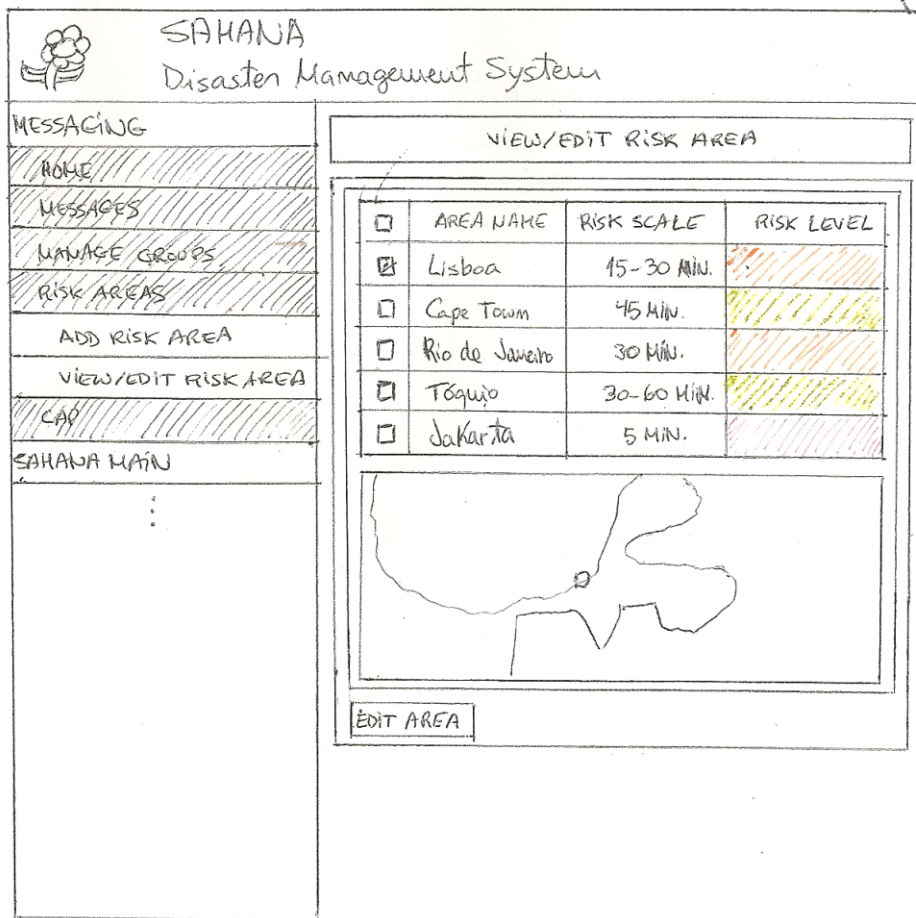 SAHANA
Disaster Management System
MESSAGING
HOME
MESSAGES
MANAGE GROUPS
RISK AREAS
ADD RISK AREA
VIEW/EDIT RISK AREA
CAP
SAHANA MAIN
VIEW/EDIT RISK AREA
AREA NAME RISK SCALE RISK LEVEL
Lisboa 15-30 MIN.
Cape Town 45 MIN.
Rio de Janeiro 30 MIN.
Tóquio 30-60 MIN.
Jakarta 5 MIN.
EDIT AREA